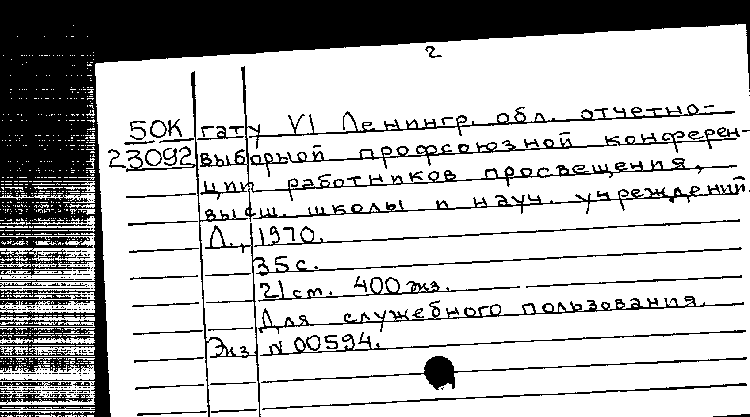 2
50К гату VI Ленингр. обл. отчетно-
23092 выборной профсоюзной конферен-
ции работников просвещения,
высш. школы и науч. учреждений.
Л., 1970.
35 с.
21 см. 400 экз.
Для служебного пользования.
Экз. N 00594.